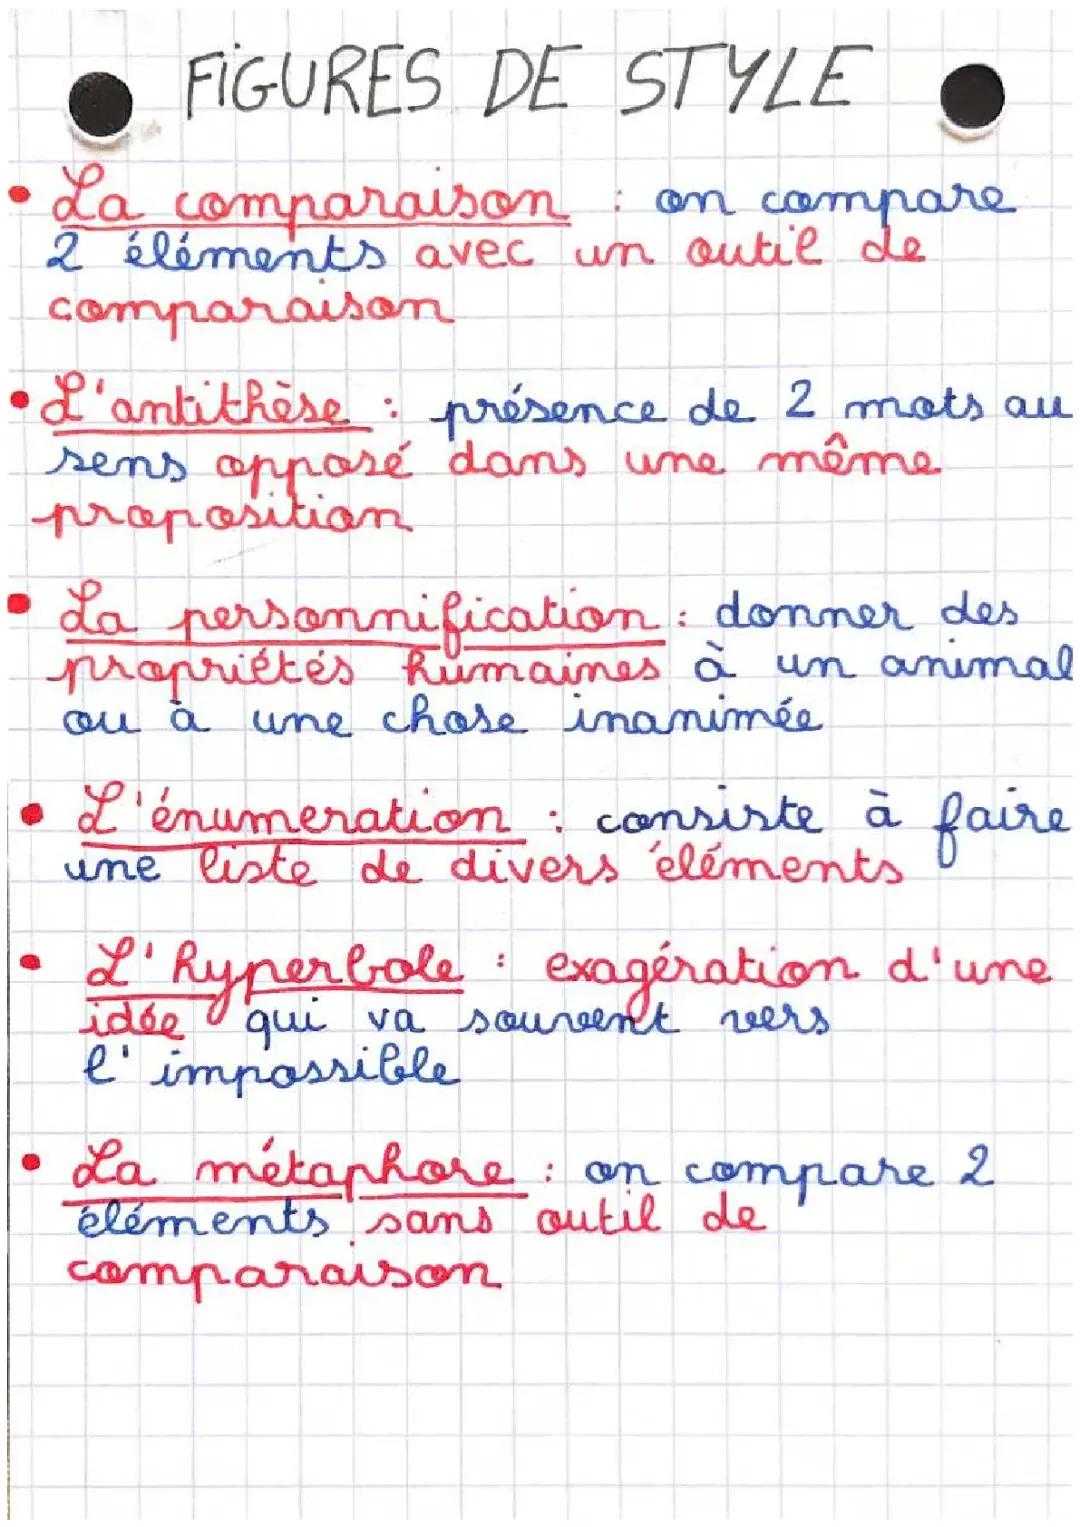 FIGURES DE STYLE
• La comparaison : on compare
2 éléments avec un outil de
comparaison
• L'antithèse : présence de 2 mots au
sens opposé dans une même
proposition
• La personnification : donner des
propriétés humaines à un animal
ou à une chose inanimée
• L'énumeration : consiste à faire
une liste de divers éléments
• L'hyperbole : exagération d'une
idée qui va souvent vers
l'impossible
• La métaphore : on compare 2
éléments sans outil de
comparaison